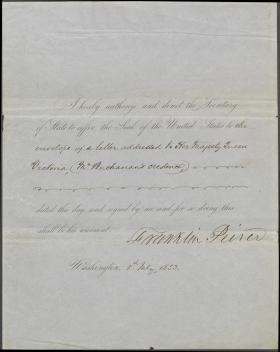 I hereby authorize and direct the Secretary
of State to affix the Seal of the United States to the
envelope of a letter addressed to Her Majesty Queen
Victoria (Mr Buchanan's credence)
dated this day, and signed by me and for so doing this
shall be his warrant.
Franklin Pierce
Washington, July, 1853.